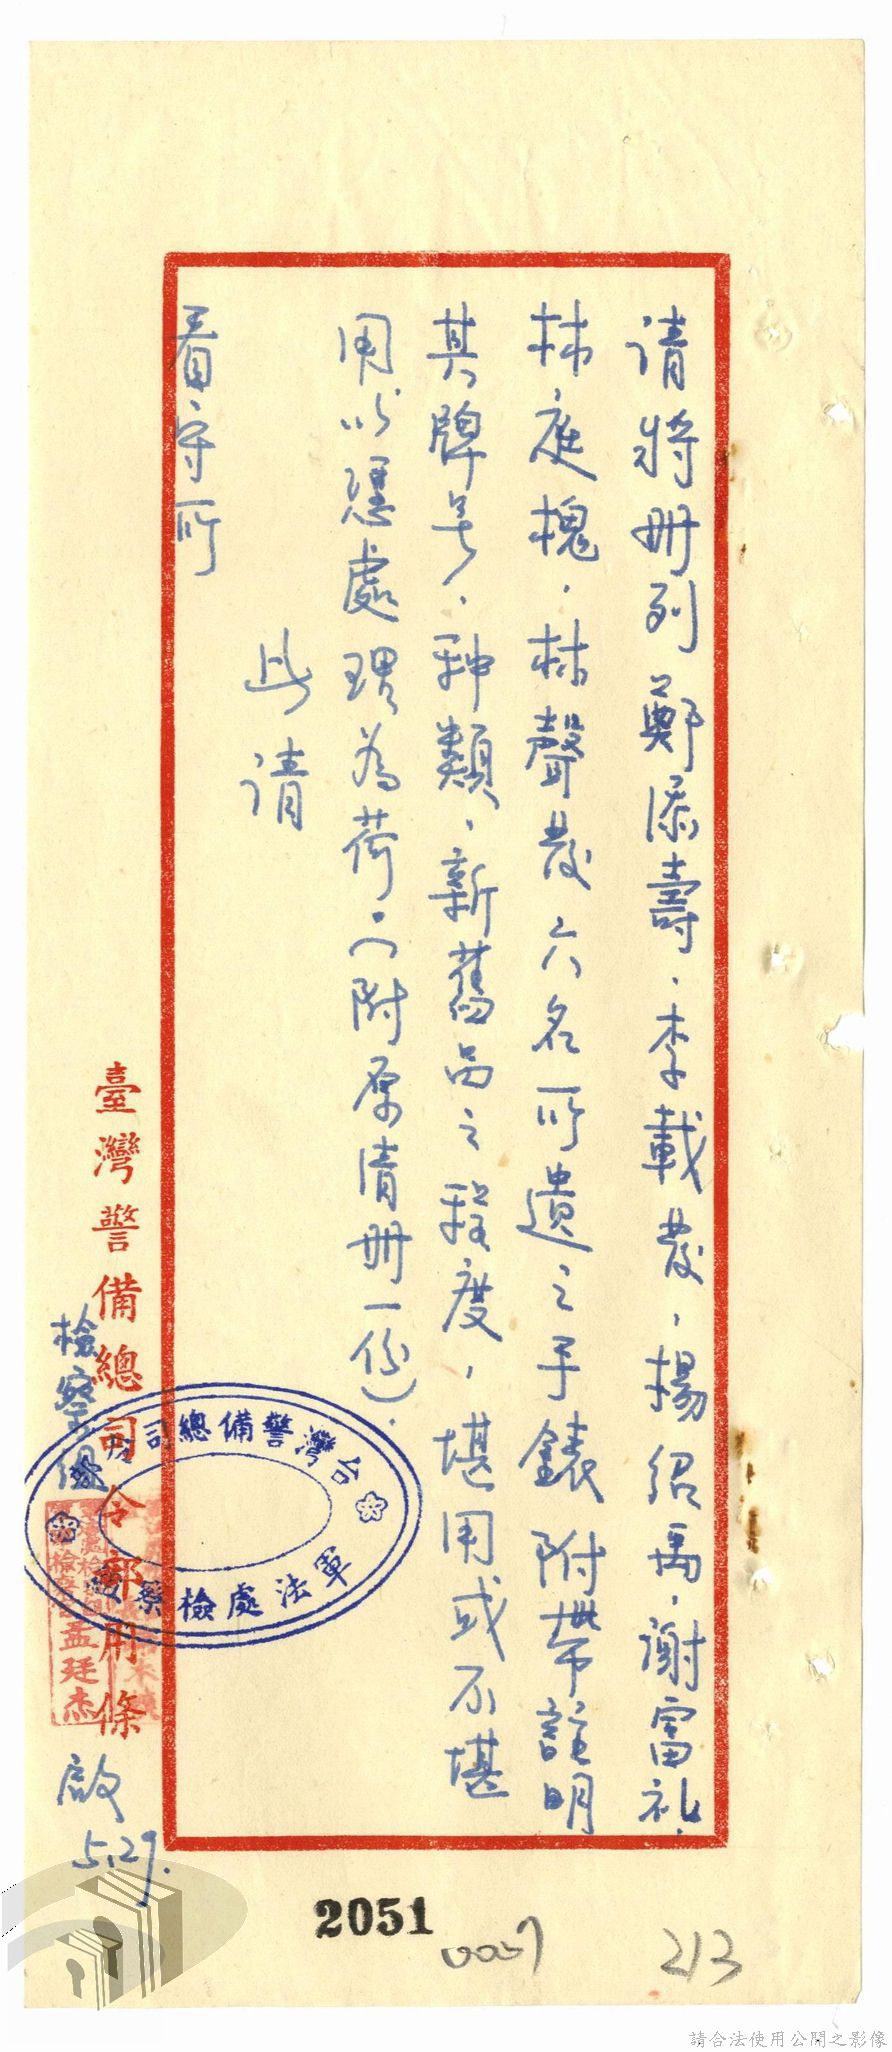 请将册列鄭添壽．李載發．楊紹禹．謝富礼．
林庭槐．林聲發六名所遺之手錶附帶註明
其牌号、种類、新舊品之程度，堪用或不堪
用以憑處理為荷。(附原清册一份)．
此请
看守所
臺灣警備總司令部用條
檢察組
台灣警備總司令部
軍法處檢察組
孟廷杰
啟
5.29.
2051
0057
213
請合法使用公開之影像